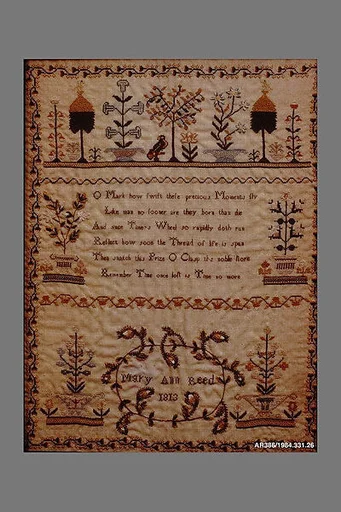 O Mark how swift these precious Moments fly
Like man no sooner are they born than die
And since Time's Wheel so rapidly doth run
Reflect how soon the Thread of life is spun
Then snatch this Prize O Clasp this noble
Remember Time once lost is Time no more
Mary Ann Reed
1813
AR386/1984.331.26